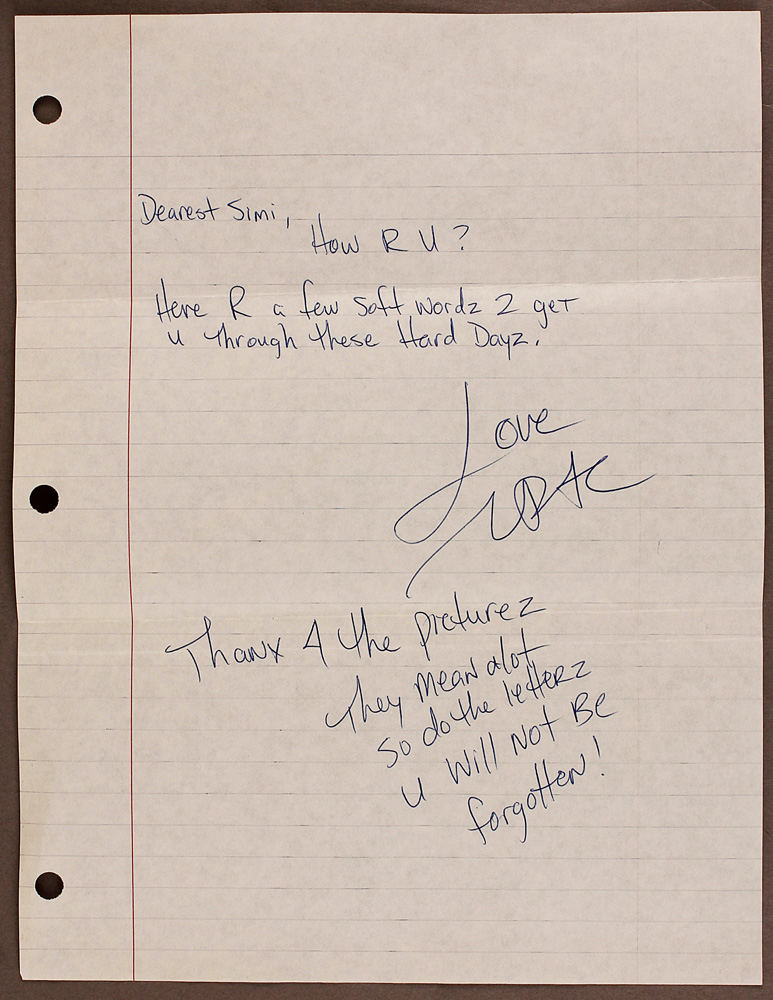 Dearest Simi,
How R U?
Here R a few soft wordz 2 get
u through these Hard Dayz.
Love
2PAC
Thanx 4 the picturez
they mean alot
so do the letterz
u will not Be
forgotten!